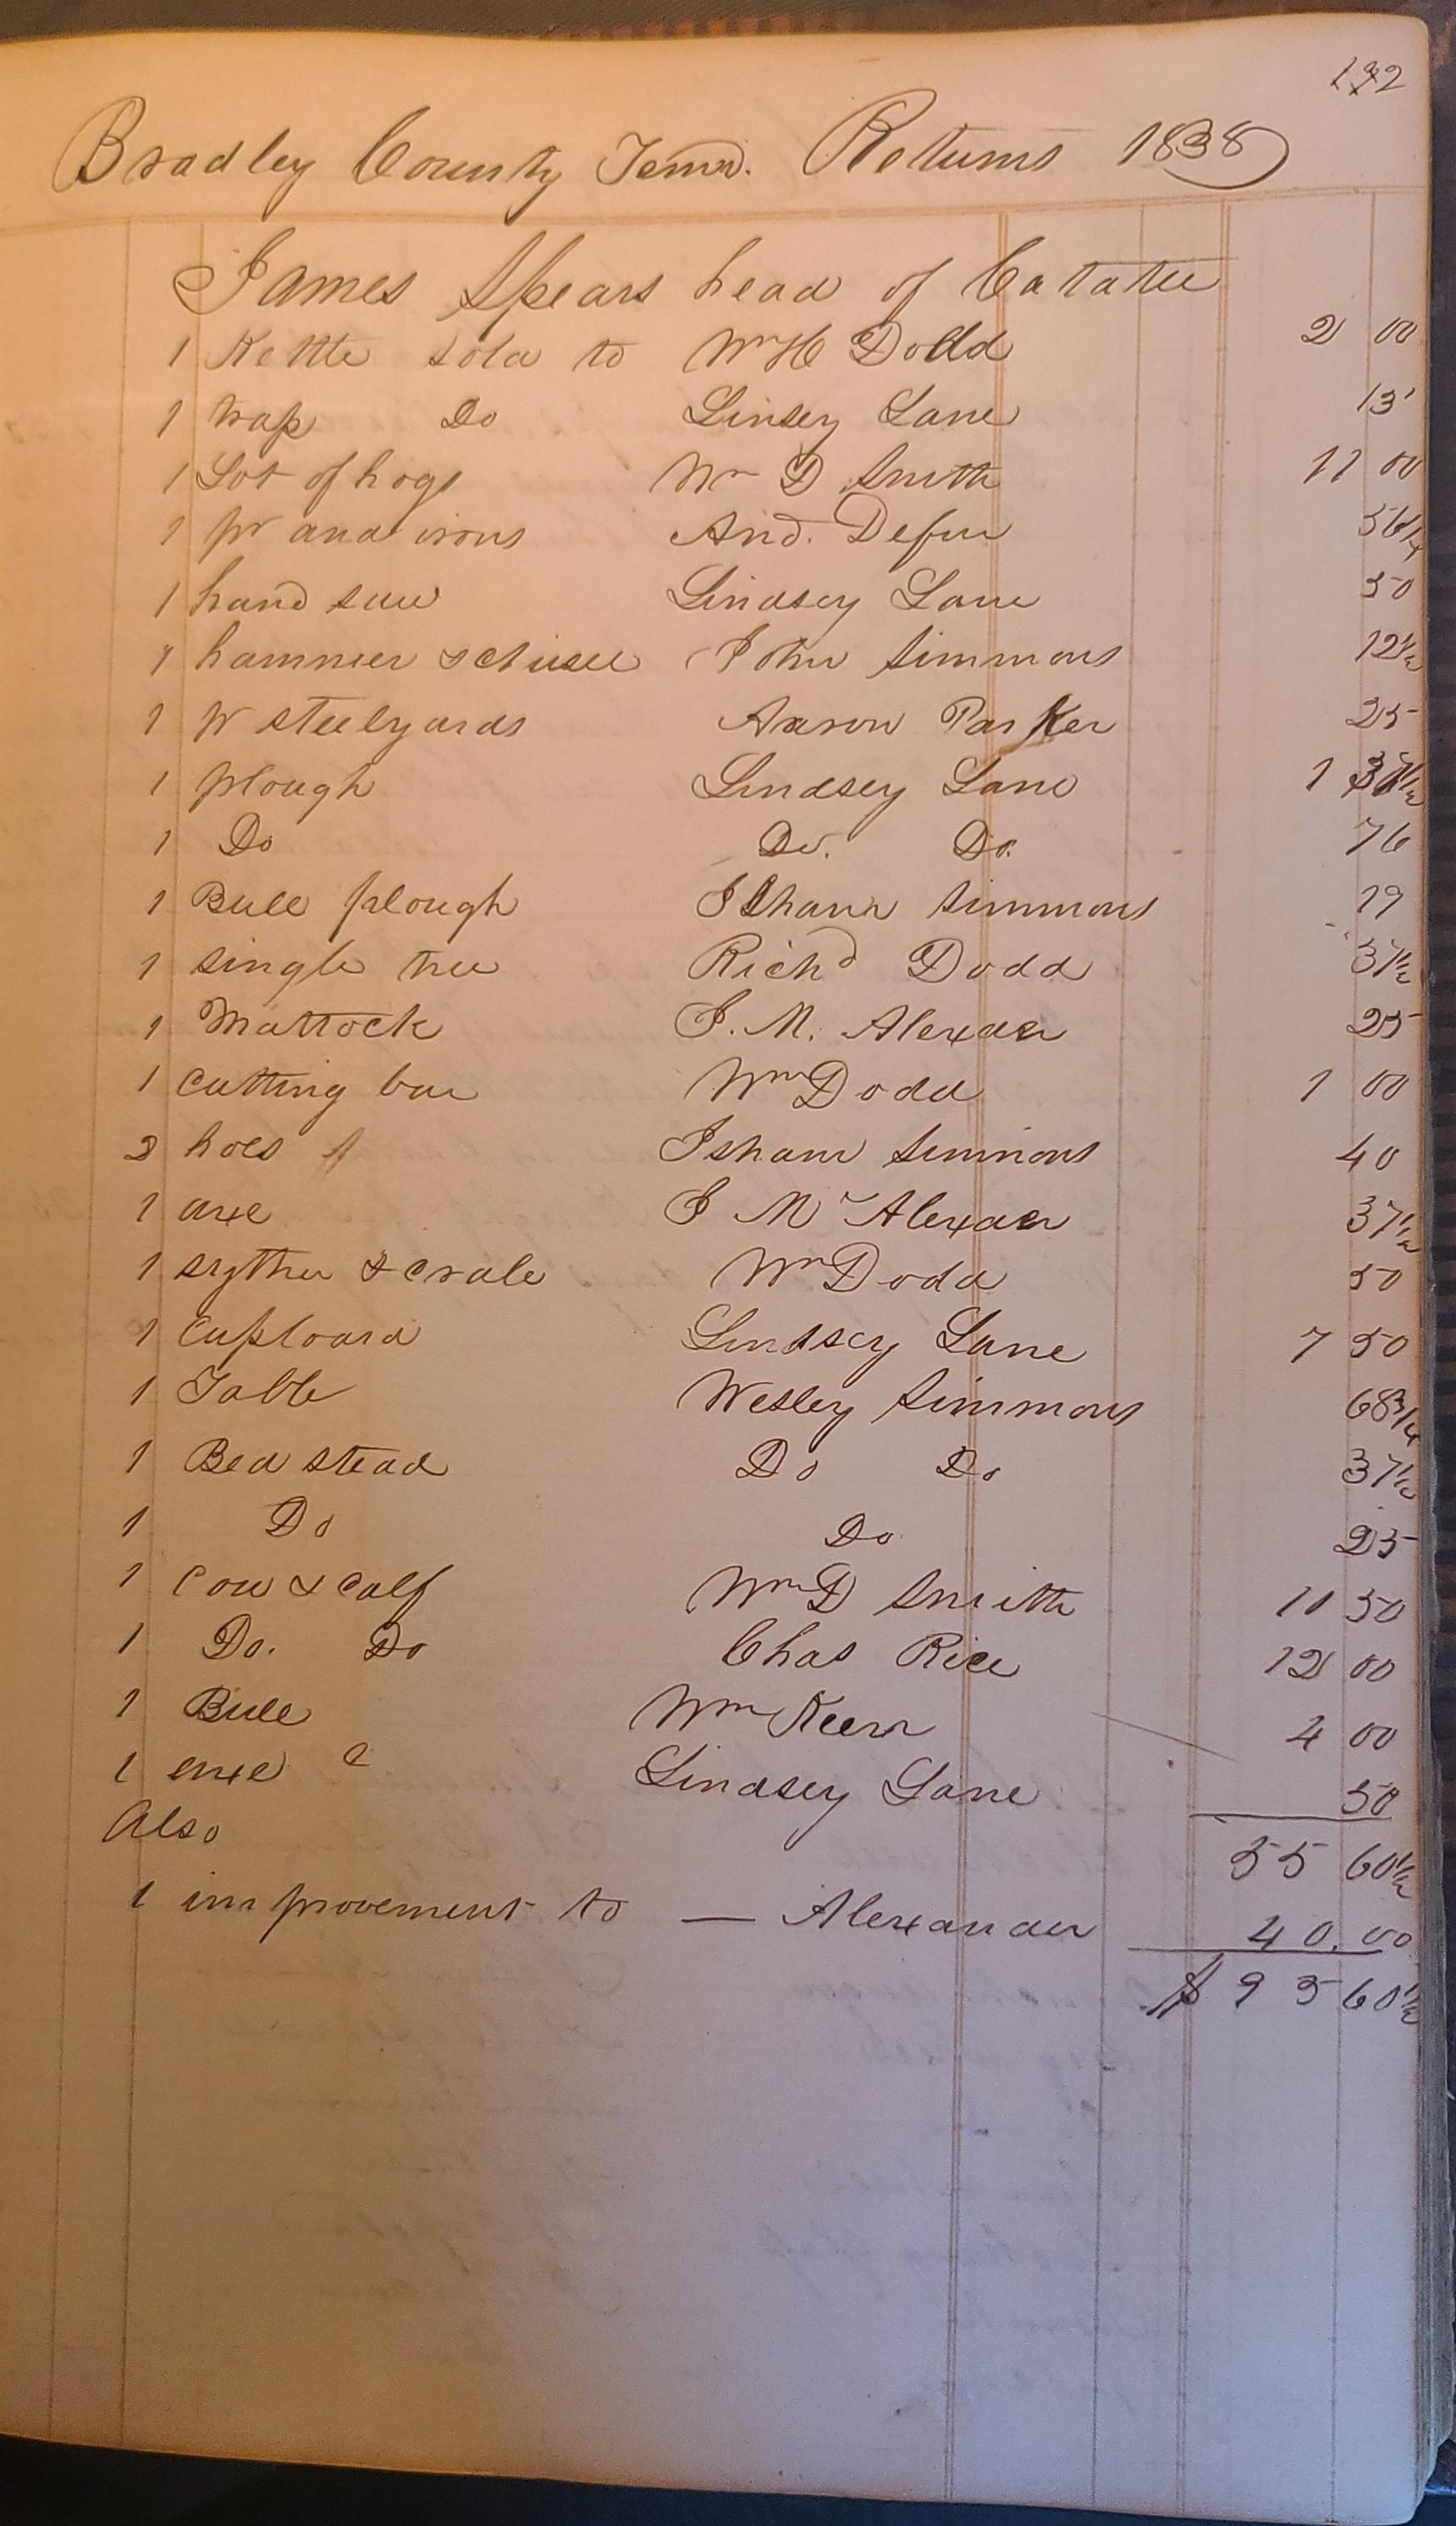 192
Bradley County Tenn. Returns 1838
James Spears head of Catatee
1 Kettle sold to Wm H Dodd 2 00
1 trap Do Linsey Lane 13
1 Lot of hogs Wm D Smith 11 00
1 pr andirons And. Defur 56 1/4
1 hand saw Lindsey Lane 50
1 hammer & chisel John Simmons 12 1/2
1 pr steelyards Aaron Parker 25
1 plough Lindsey Lane 1 37 1/2
1 Do Do. Do. 76
1 Bull plough Isham Simmons 19
1 single tree Richd Dodd 37 1/2
1 Mattock J. M. Alexader 25
1 cutting box Wm Dodd 1 00
2 hoes Isham Simmons 40
1 axe J M Alexader 37 1/2
1 sythe & cradle Wm Dodd 50
1 cupboard Lindsey Lane 7 50
1 Table Wesley Simmons 68 3/4
1 Bed stead Do Do 37 1/2
1 Do Do 25
1 Cow & calf Wm D Smith 10 50
1 Do. Do Chas Rice 12 00
1 Bull Wm Keern 4 00
1 axe Lindsey Lane 50
Also 55 60 1/2
1 improvement to — Alexander 40.00
$ 95 60 1/2